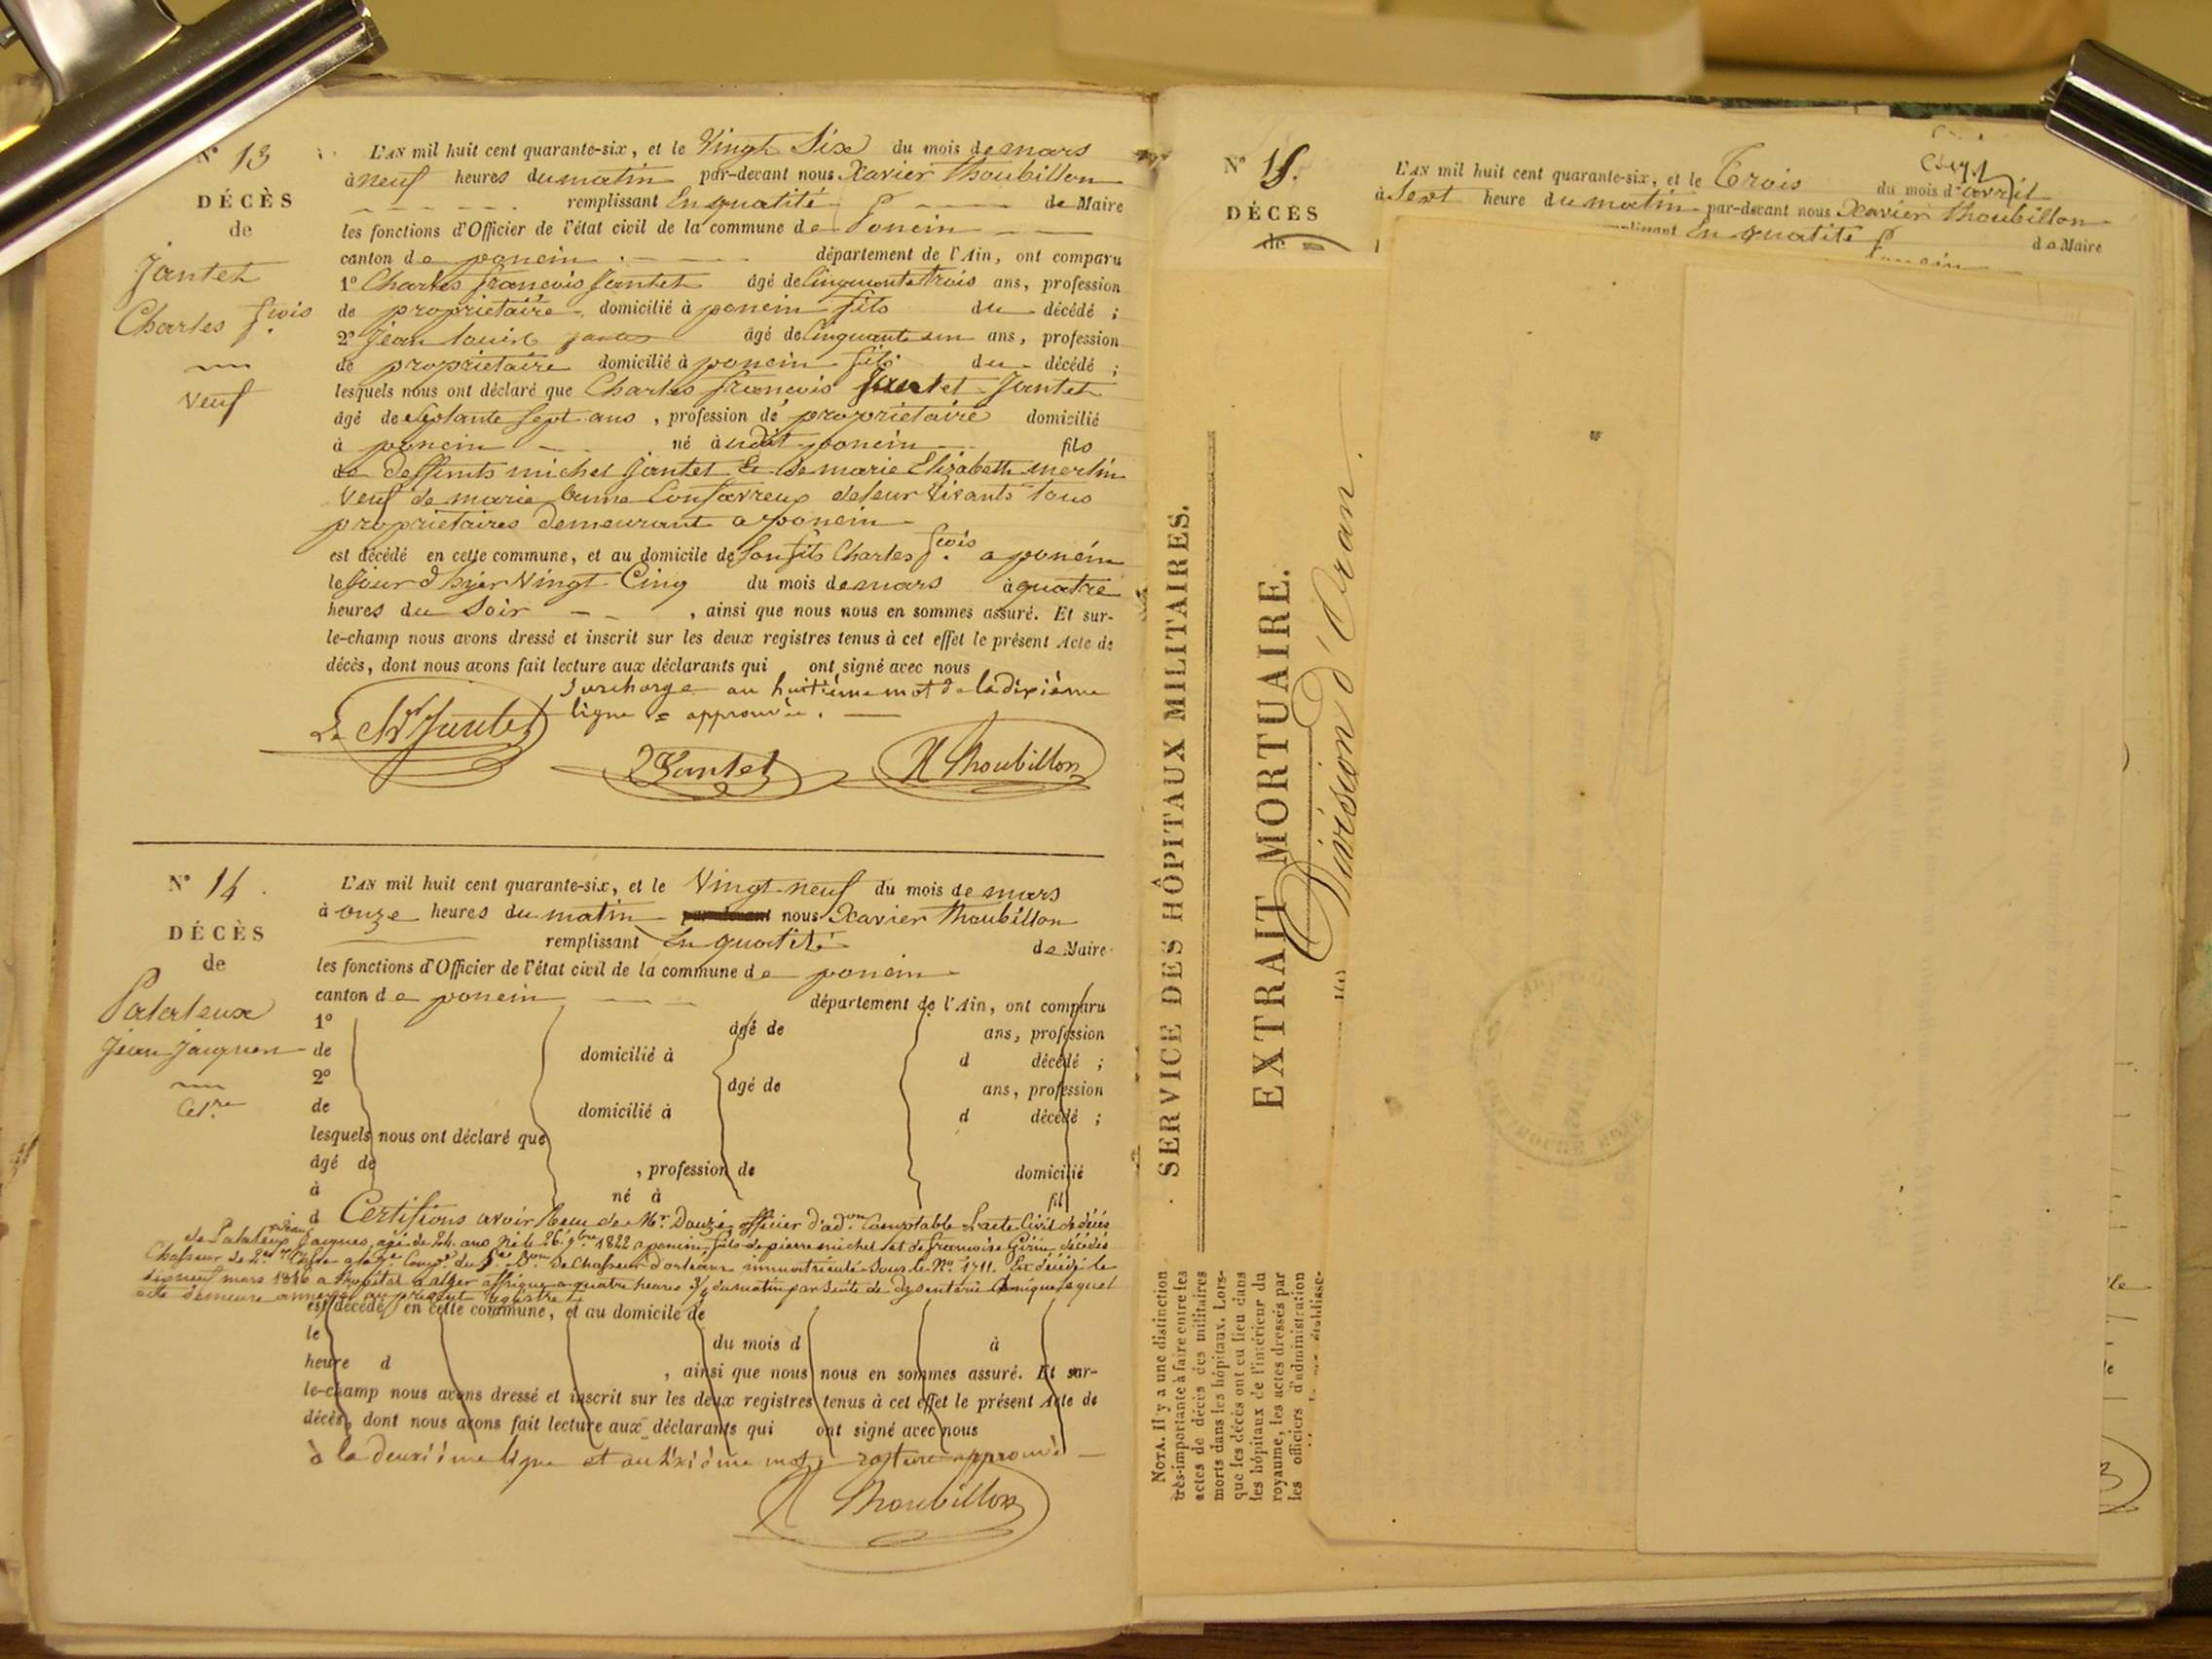 N° 13
DÉCÈS
de
Jantet
Charles fcois
Veuf
L'AN mil huit cent quarante-six, et le Vingt Six du mois de mars
à neuf heures du matin par-devant nous Xavier Thoubillon
remplissant En qualité de Maire
les fonctions d'Officier de l'état civil de la commune de Poncin
canton de poncin département de l'Ain, ont comparu
1° Charles francois Jantet âgé de Cinquante trois ans, profession
de propriétaire domicilié à poncin fils du décédé ;
2° Jean Louis jantet âgé de Cinquante un ans, profession
de proprietaire domicilié à poncin fils du décédé ;
lesquels nous ont déclaré que Charles francois Jantet Jantet
âgé de septante sept ans, profession de propriétaire domicilié
à poncin né audit poncin fils
de deffunts michel Jantet & de marie Elizabeth merlin
Veuf de marie Convavreux de leur vivants tous
proprietaires demeurant a poncin
est décédé en cette commune, et au domicile de son fils Charles fcois a poncin
le Jour d'hyer Vingt Cinq du mois de mars à quatre
heures du Soir , ainsi que nous nous en sommes assuré. Et sur-
le-champ nous avons dressé et inscrit sur les deux registres tenus à cet effet le présent Acte de
décès, dont nous avons fait lecture aux déclarants qui ont signé avec nous
Surcharge au huitième mot de la dixième
ligne = approuvée.
Jantet
Jantet
X Thoubillon
N° 14.
DÉCÈS
de
Palateux
Jean Jacques
Celre
L'AN mil huit cent quarante-six, et le Vingt-neuf du mois de mars
à onze heures du matin par-devant nous Xavier Thoubillon
remplissant En qualité de Maire
les fonctions d'Officier de l'état civil de la commune de poncin
canton de poncin département de l'Ain, ont comparu
1° âgé de ans, profession
de domicilié à d décédé ;
2° âgé de ans, profession
de domicilié à d décédé ;
lesquels nous ont déclaré que
âgé de , profession de domicilié
à né à fil
d Certifions avoir Recu de Mr. Dauzé officier d'adon Comptable L'acte Civil de décés
de Palateux Jean Jacques, agé de 24 ans né le 26 9bre 1822 a poncin fils de pierre michel et de francoise décédés
Chasseur de 2e Classe a la 7e Compie du Bon de Chasseur D'orléans immatriculé Sous le No. 1711. Est décédé le
dixneuf mars 1846 a L'hopital D'alger affrique a quatre heures 3/4 du matin par Suite de dysenterie Cronique lequel
acte demeure annexé au present registre
est décédé en cette commune, et au domicile de
le du mois d à
heure d , ainsi que nous nous en sommes assuré. Et sur-
le-champ nous avons dressé et inscrit sur les deux registres tenus à cet effet le présent Acte de
décès, dont nous avons fait lecture aux déclarants qui ont signé avec nous
à la deuxième ligne et au sixième mot, rature approuvée
X Thoubillon
N° 15.
DÉCÈS
de
L'AN mil huit cent quarante-six, et le Trois du mois d'avril
à Sept heure du matin par-devant nous Xavier Thoubillon
En qualité de Maire
SERVICE DES HÔPITAUX MILITAIRES.
EXTRAIT MORTUAIRE.
Division d'Oran.
NOTA. Il y a une distinction
très-importante à faire entre les
actes de décès des militaires
morts dans les hôpitaux. Lors-
que les décès ont eu lieu dans
les hôpitaux de l'intérieur du
royaume, les actes dressés par
les officiers d'administration